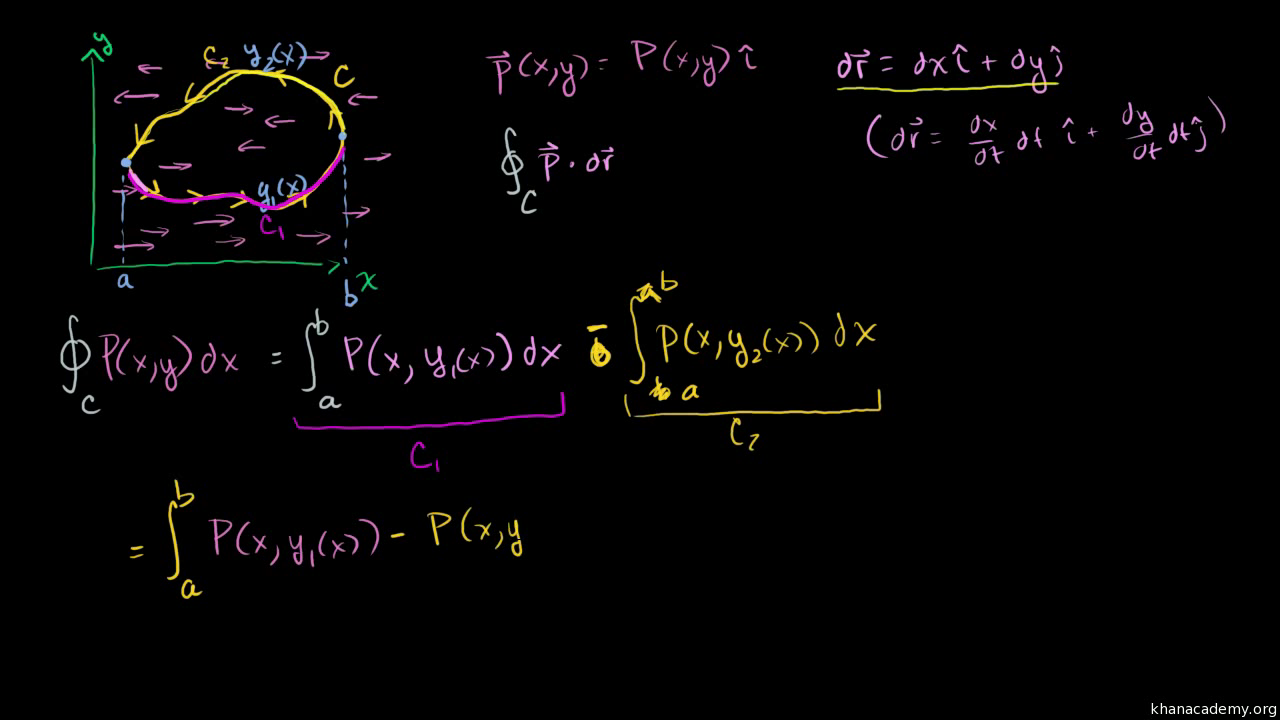 y
C₂ y₂(x) C
y₁(x)
C₁
a b x
P⃗(x,y) = P(x,y) î
∮_C P⃗ · dr⃗
dr⃗ = dx î + dy ĵ
(dr⃗ = dx/dt dt î + dy/dt dt ĵ)
∮_C P(x,y) dx = ∫_a^b P(x, y₁(x)) dx - ∫_a^b P(x, y₂(x)) dx
C₁ C₂
= ∫_a^b P(x, y₁(x)) - P(x, y
khanacademy.org